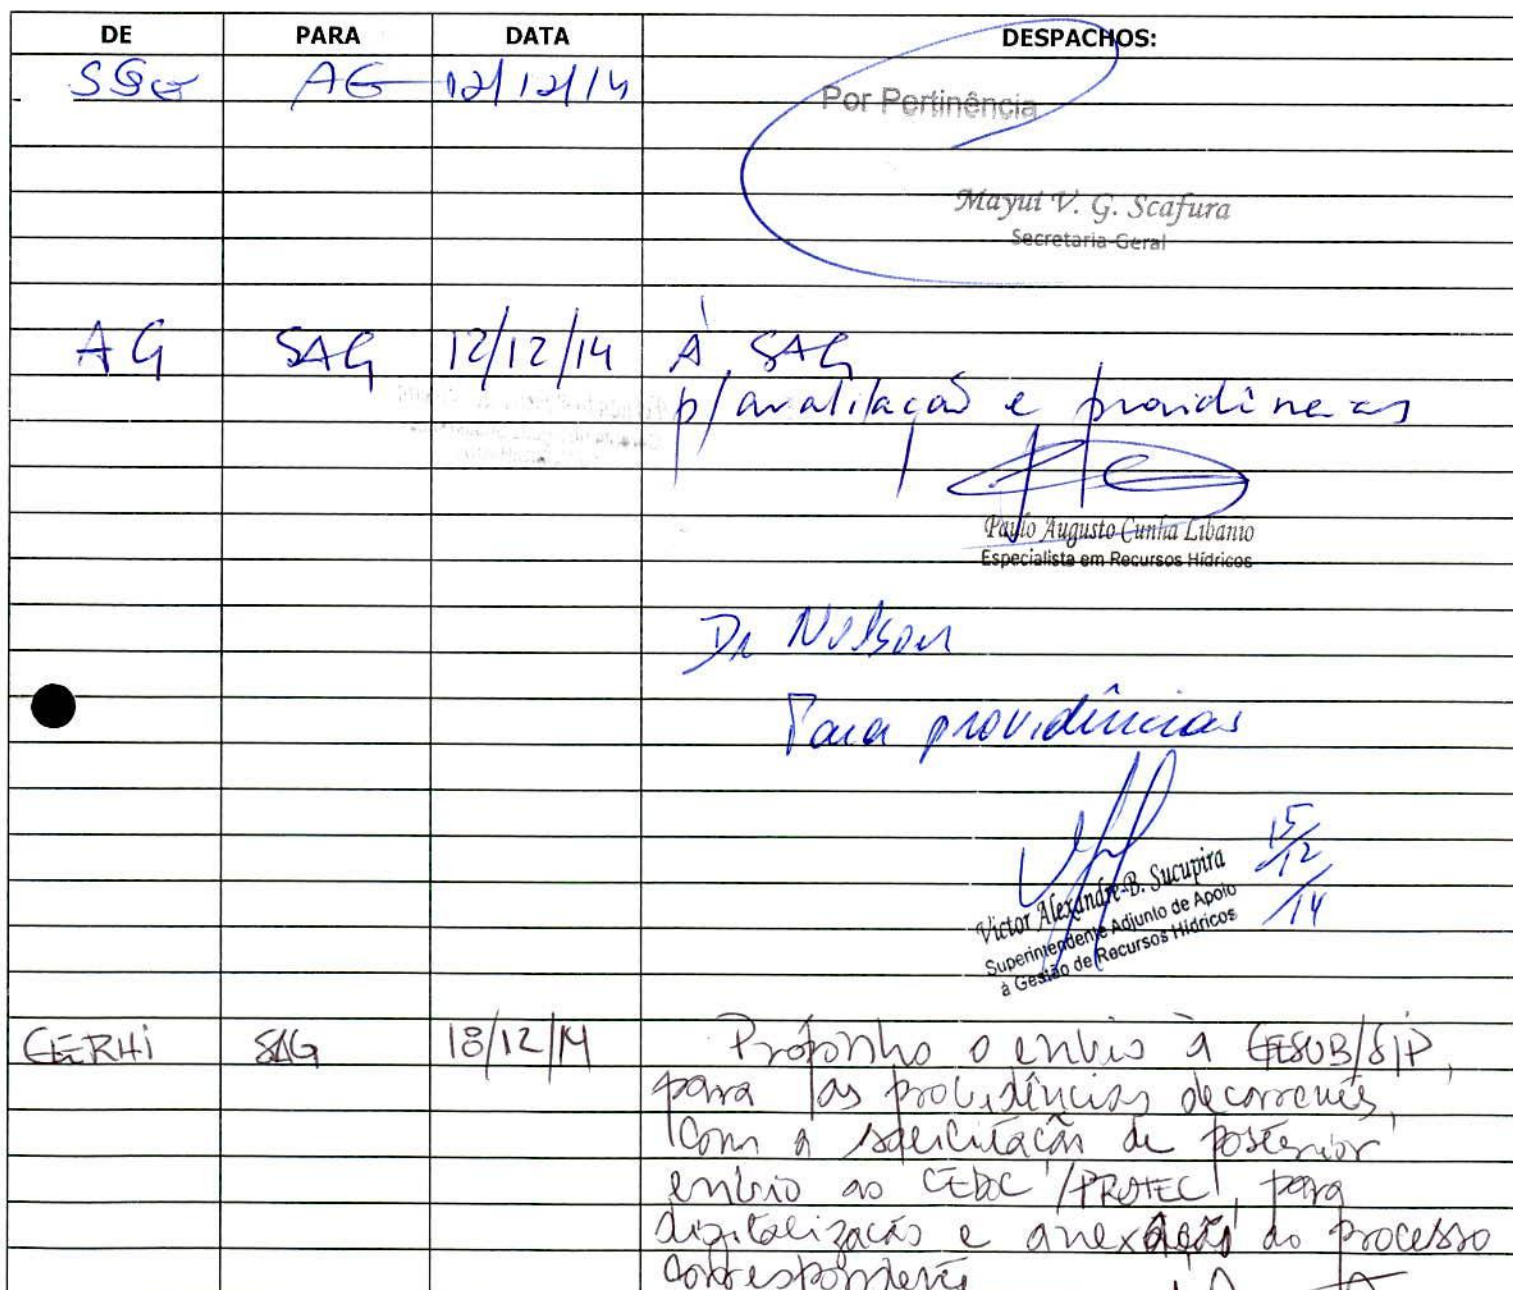 DE PARA DATA DESPACHOS:
SGe AG 12/12/14
Por Pertinência
Mayui V. G. Scafura
Secretaria-Geral
AG SAG 12/12/14 À SAG
p/ avaliação e providências
Paulo Augusto Cunha Libanio
Especialista em Recursos Hídricos
Dr Nelson
Para providências
15/12/14
Victor Alexandre B. Sucupira
Superintendente Adjunto de Apoio
à Gestão de Recursos Hídricos
GERHI SAG 18/12/14 Proponho o envio à GESUB/SIP,
para as providências decorrentes,
com a solicitação de posterior
envio ao CEDOC/PROTEC, para
digitalização e anexação ao processo
correspondente